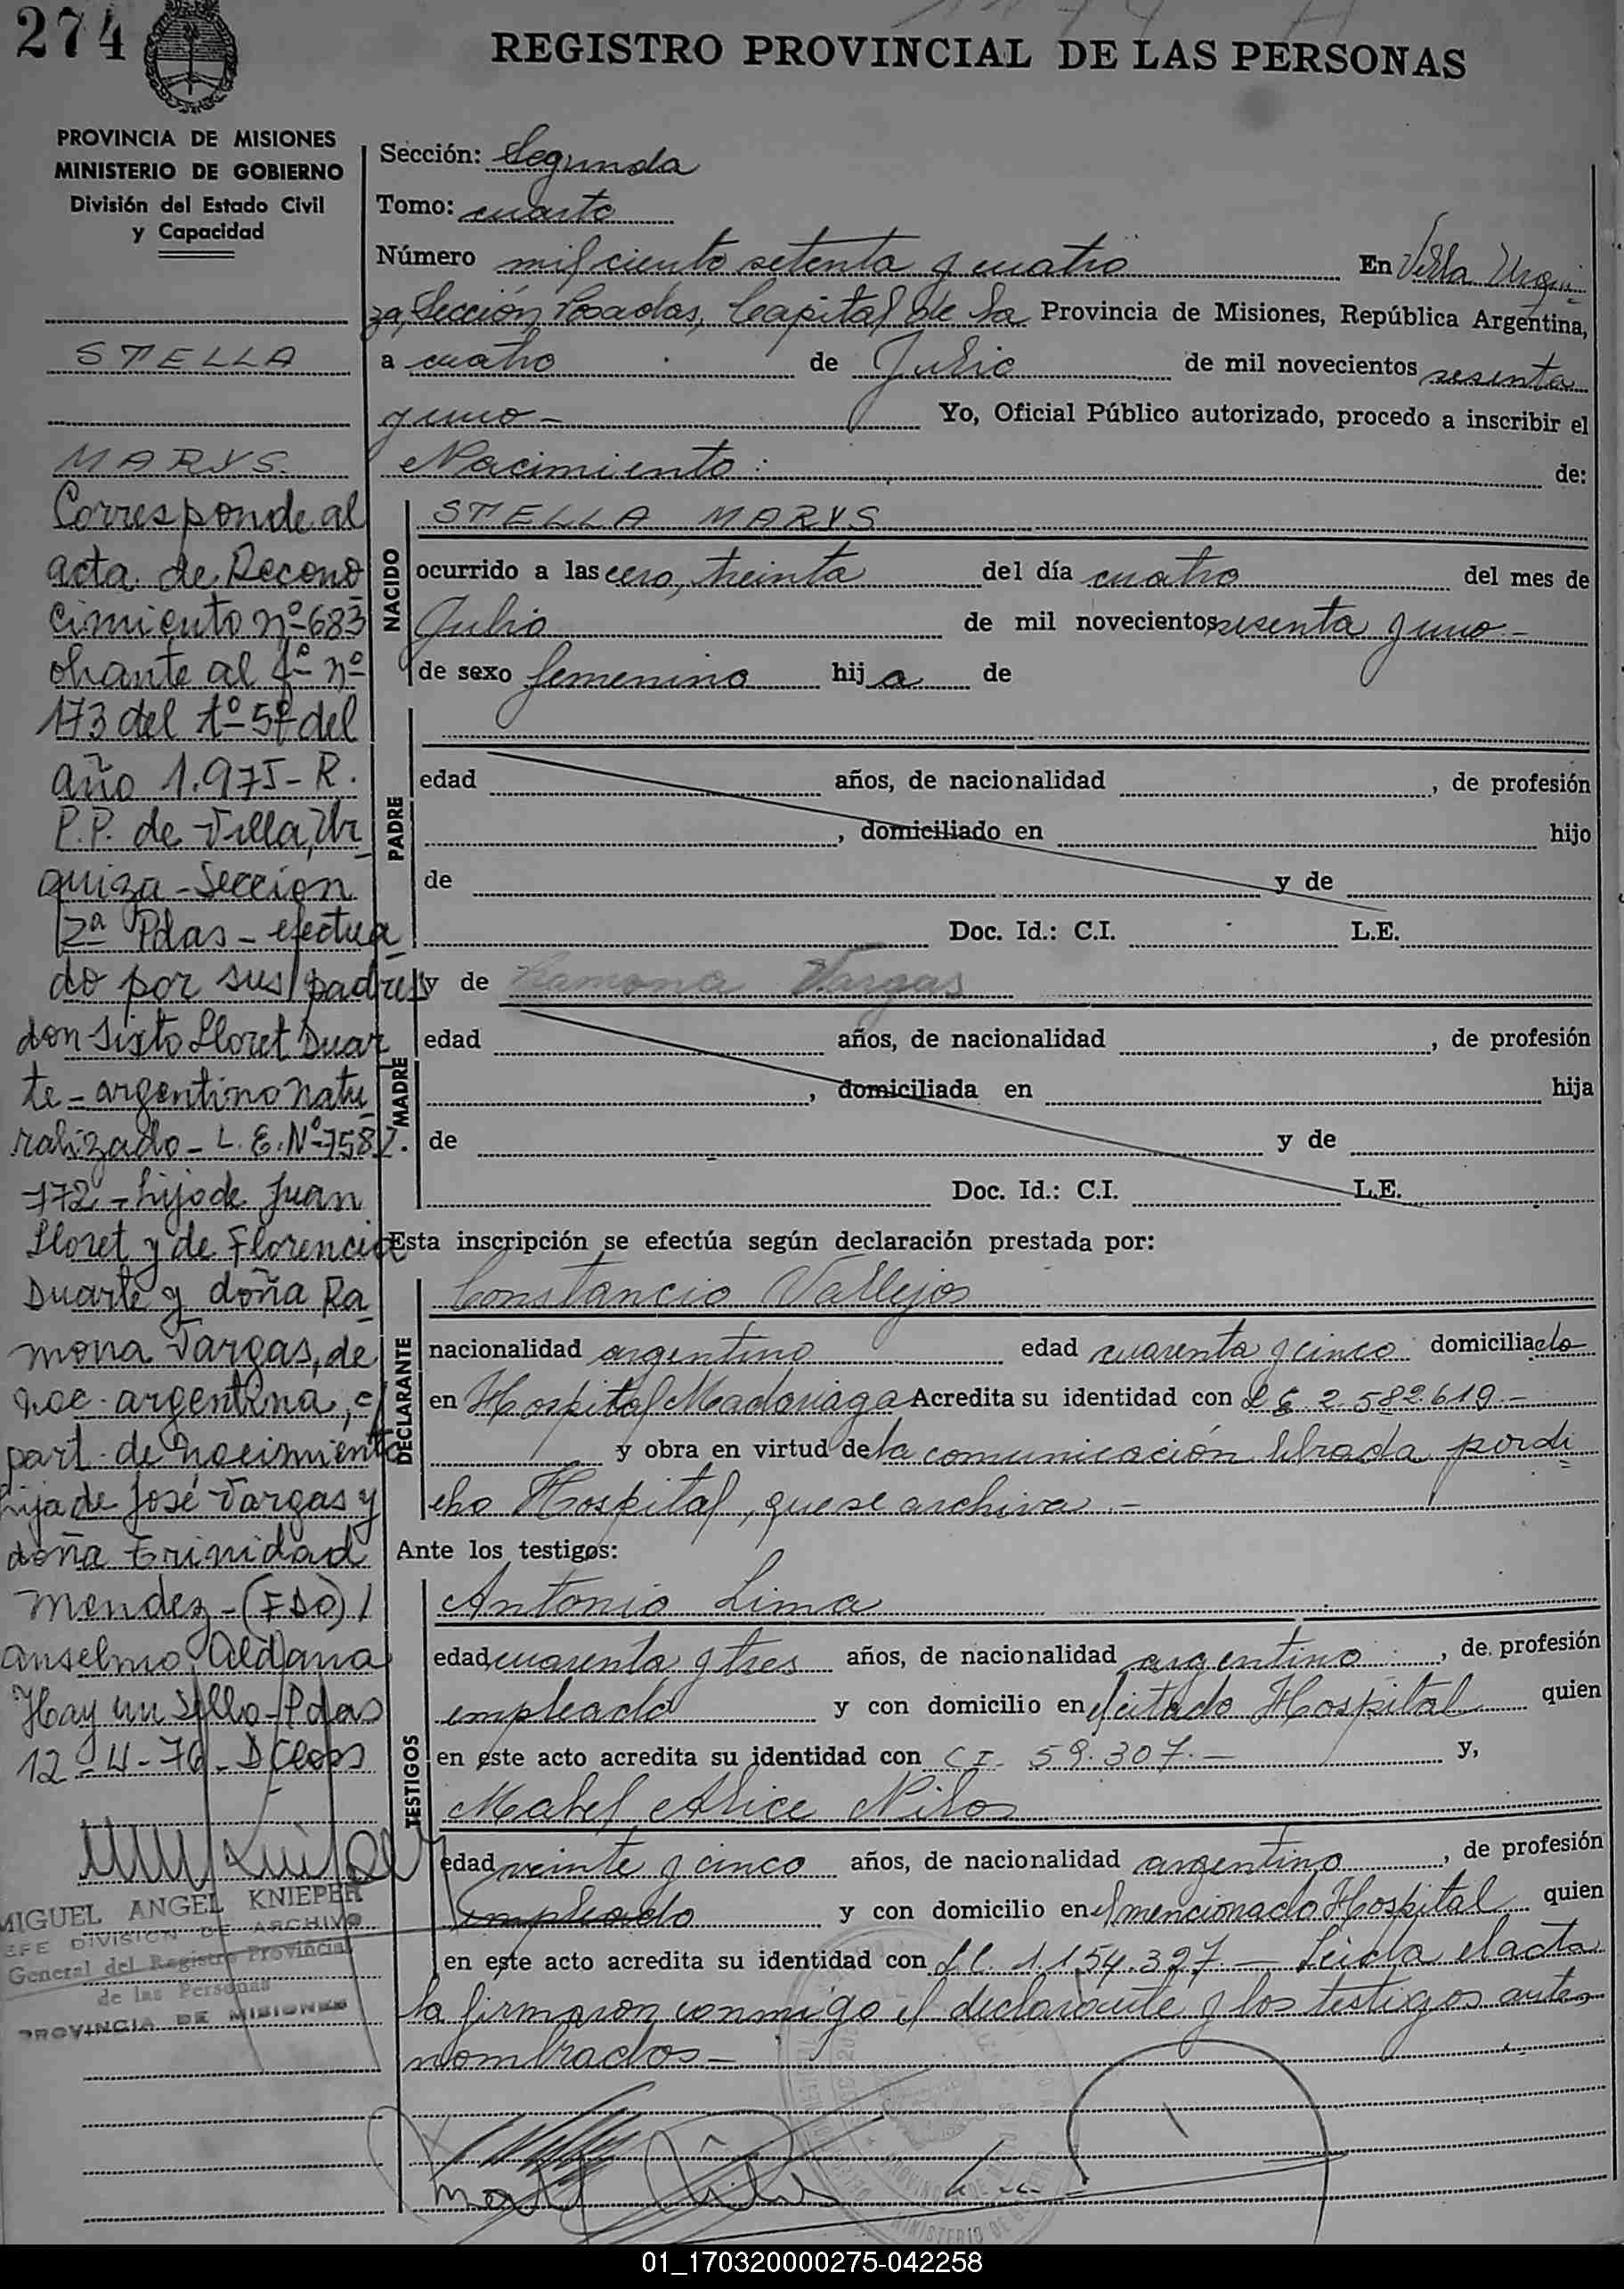 274
REGISTRO PROVINCIAL DE LAS PERSONAS
PROVINCIA DE MISIONES
MINISTERIO DE GOBIERNO
División del Estado Civil
y Capacidad
STELLA
MARYS
Corresponde al
acta de Recono
cimiento nº 683
obrante al fº nº
173 del tº 5º del
año 1.975 - R.
P.P. de Villa Ur
quiza - Sección
2ª Pdas - efectua
do por sus padres
don Sixto Lloret Duar
te - argentino natu
ralizado - L.E. Nº 7582.
172 - hijo de Juan
Lloret y de Florencia
Duarte y doña Ra
mona Vargas, de
nac. argentina, c/
part. de nacimiento
hija de José Vargas y
doña Trinidad
Mendez - (FDO) /
Anselmo Aldana
Hay un Sello - Pdas
12-4-76 -
MIGUEL ANGEL KNIEPER
JEFE DIVISION DE ARCHIVO
General del Registro Provincial
de las Personas
PROVINCIA DE MISIONES
Sección: Segunda
Tomo: cuarto
Número mil ciento setenta y cuatro En Villa Urqui
za, Sección Posadas, Capital de la Provincia de Misiones, República Argentina,
a cuatro de Julio de mil novecientos sesenta
y uno - Yo, Oficial Público autorizado, procedo a inscribir el
Nacimiento: de:
NACIDO
STELLA MARYS
ocurrido a las cero, treinta del día cuatro del mes de
Julio de mil novecientos sesenta y uno -
de sexo femenino hija de
PADRE
edad años, de nacionalidad , de profesión
, domiciliado en hijo
de y de
Doc. Id.: C.I. L.E.
MADRE
y de Ramona Vargas
edad años, de nacionalidad , de profesión
, domiciliada en hija
de y de
Doc. Id.: C.I. L.E.
Esta inscripción se efectúa según declaración prestada por:
DECLARANTE
Constancio Vallejos
nacionalidad argentino edad cuarenta y cinco domiciliado
en Hospital Madariaga Acredita su identidad con L E 2.582.619.-
y obra en virtud de la comunicación librada por di
cho Hospital, que se archiva.-
Ante los testigos:
TESTIGOS
Antonio Lima
edad cuarenta y tres años, de nacionalidad argentino , de profesión
empleado y con domicilio en el citado Hospital quien
en este acto acredita su identidad con C I. 59.307.- y,
Mabel Alice
edad veinte y cinco años, de nacionalidad argentino , de profesión
empleado y con domicilio en el mencionado Hospital quien
en este acto acredita su identidad con L C. 1.154.327.- Leida el acta
la firmaron conmigo el declarante y los testigos ante
nombrados -
01_170320000275-042258